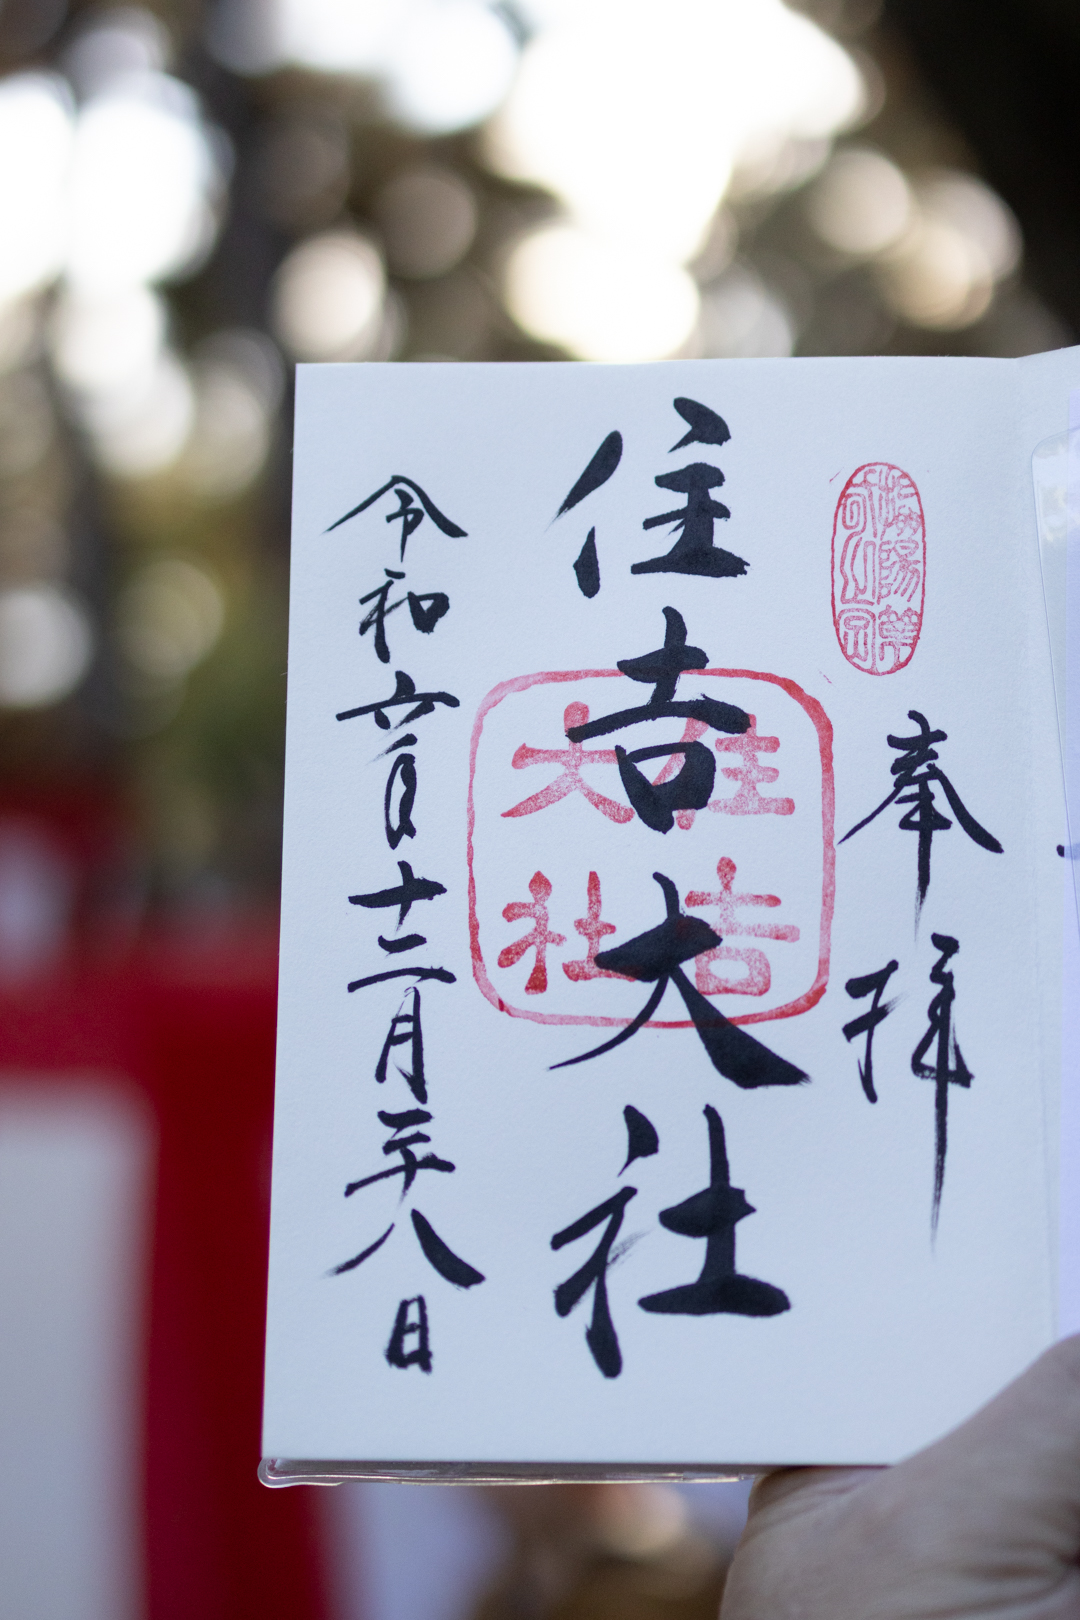 奉拝
住吉大社
住吉
大社
令和六年十二月二十八日